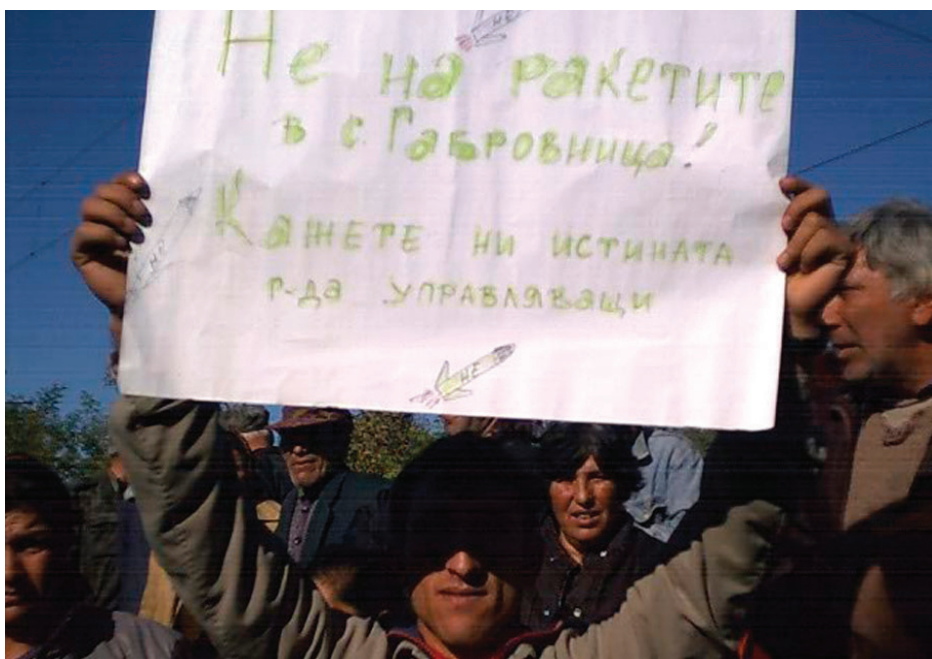 НЕ
Не на ракетите
в с. Габровница!
Кажете ни истината
г-да управляващи
НЕ
НЕ